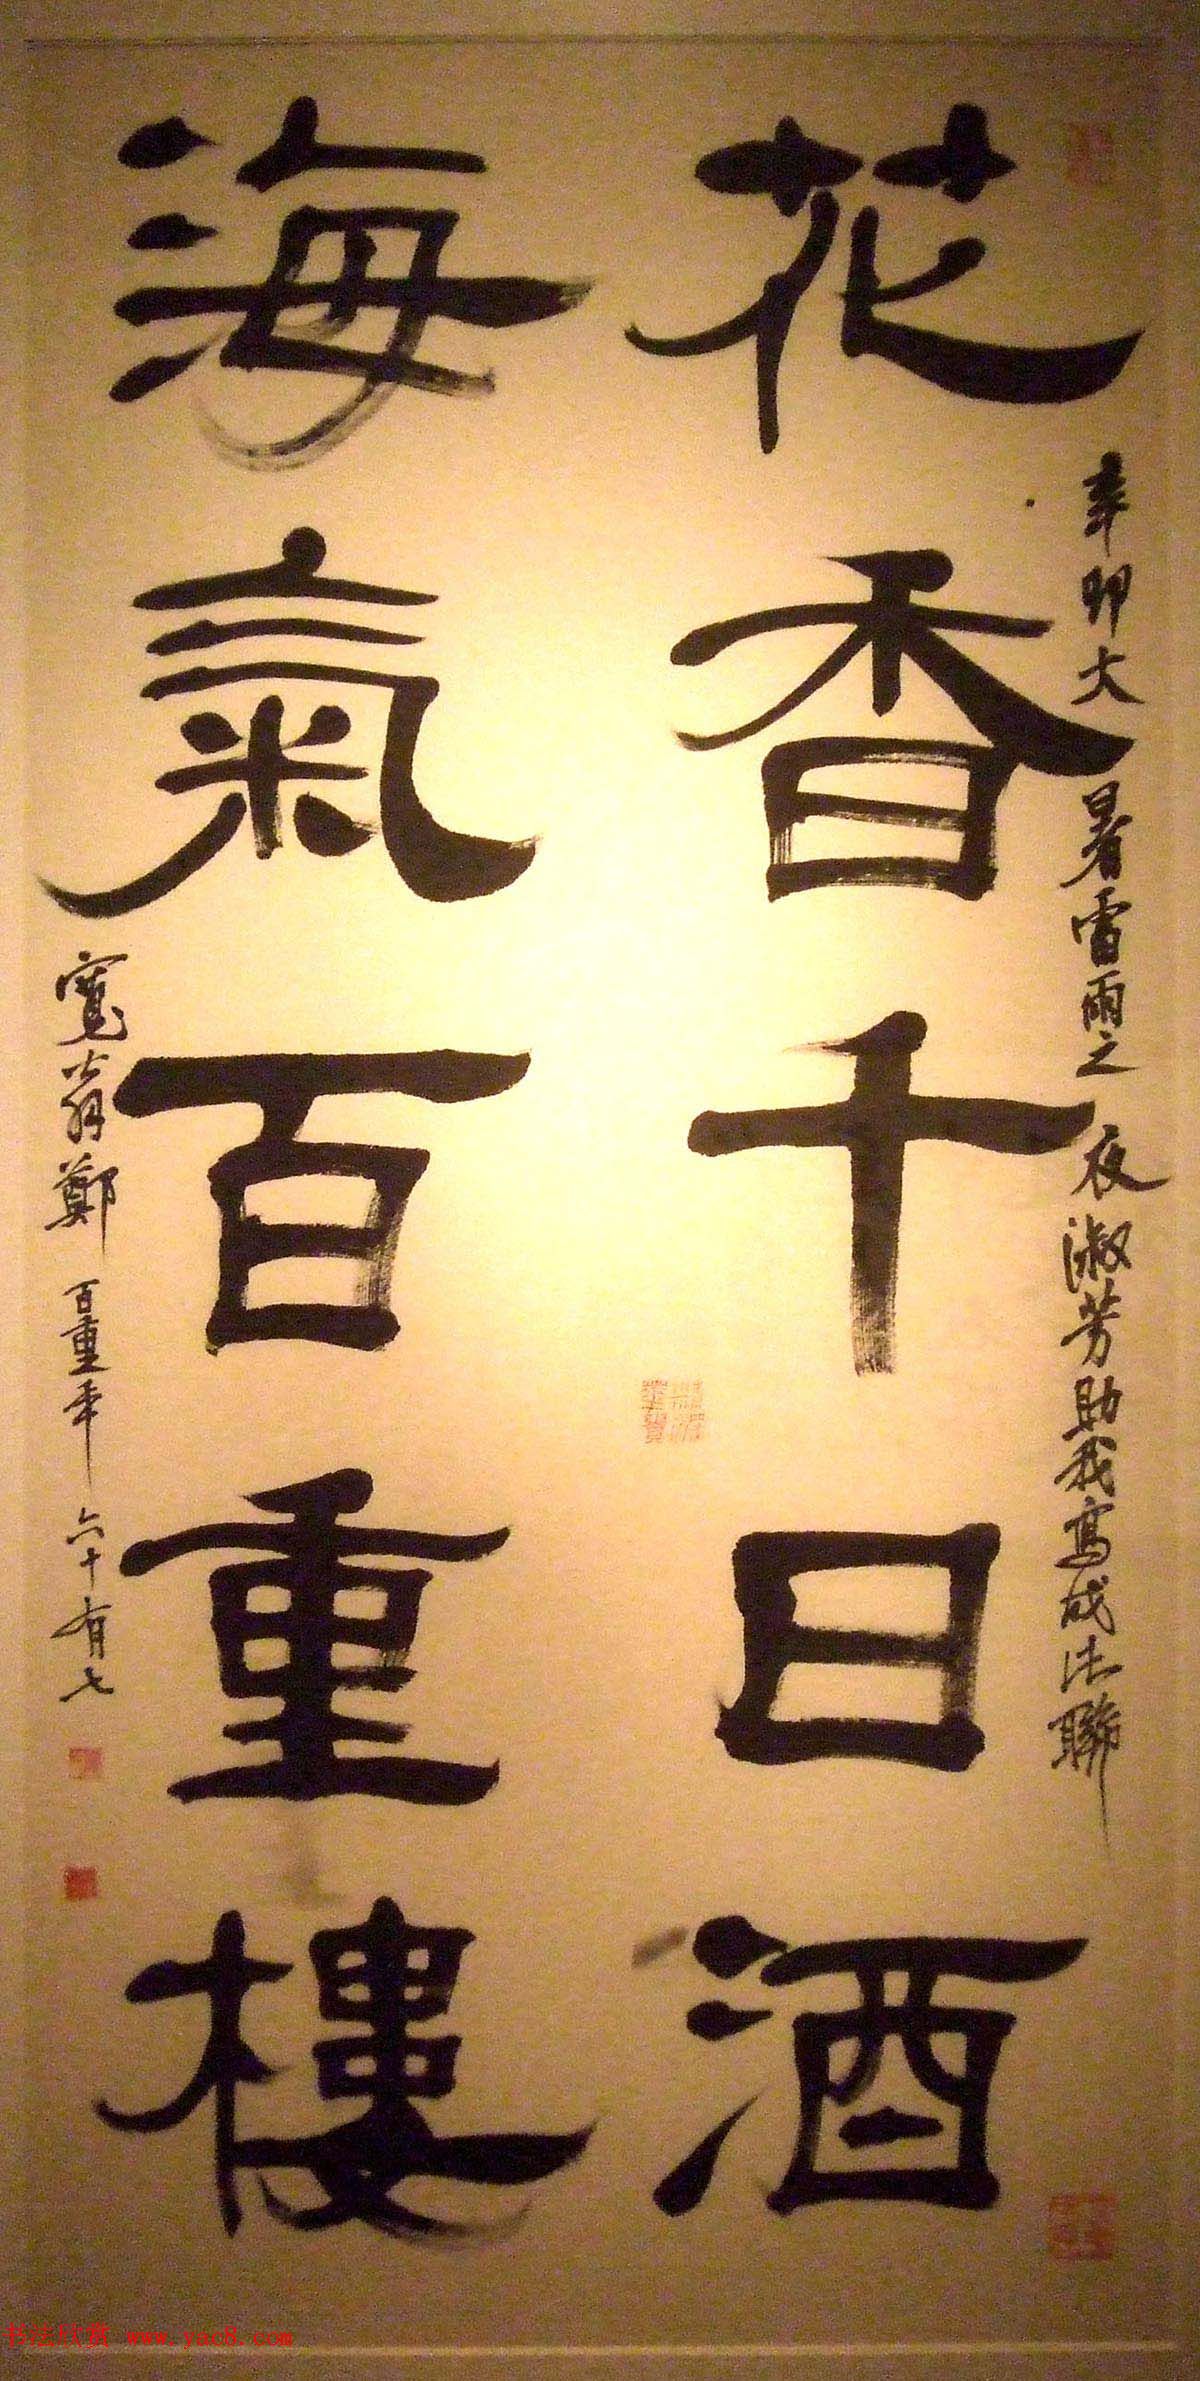 花香千日酒
海氣百重樓
辛卯大暑雷雨之夜淑芳助我寫成此聯
寬翁鄭百重年六十有七
书法欣赏 www.yac8.com